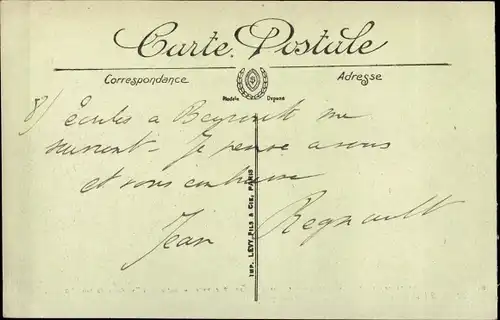 Carte Postale
Correspondance
Adresse
Modèle Déposé
8/ écrites à Beyrouth me
suivent. Je pense à vous
et vous embrasse
Jean Regnault
IMP. LEVY FILS & CIE, PARIS